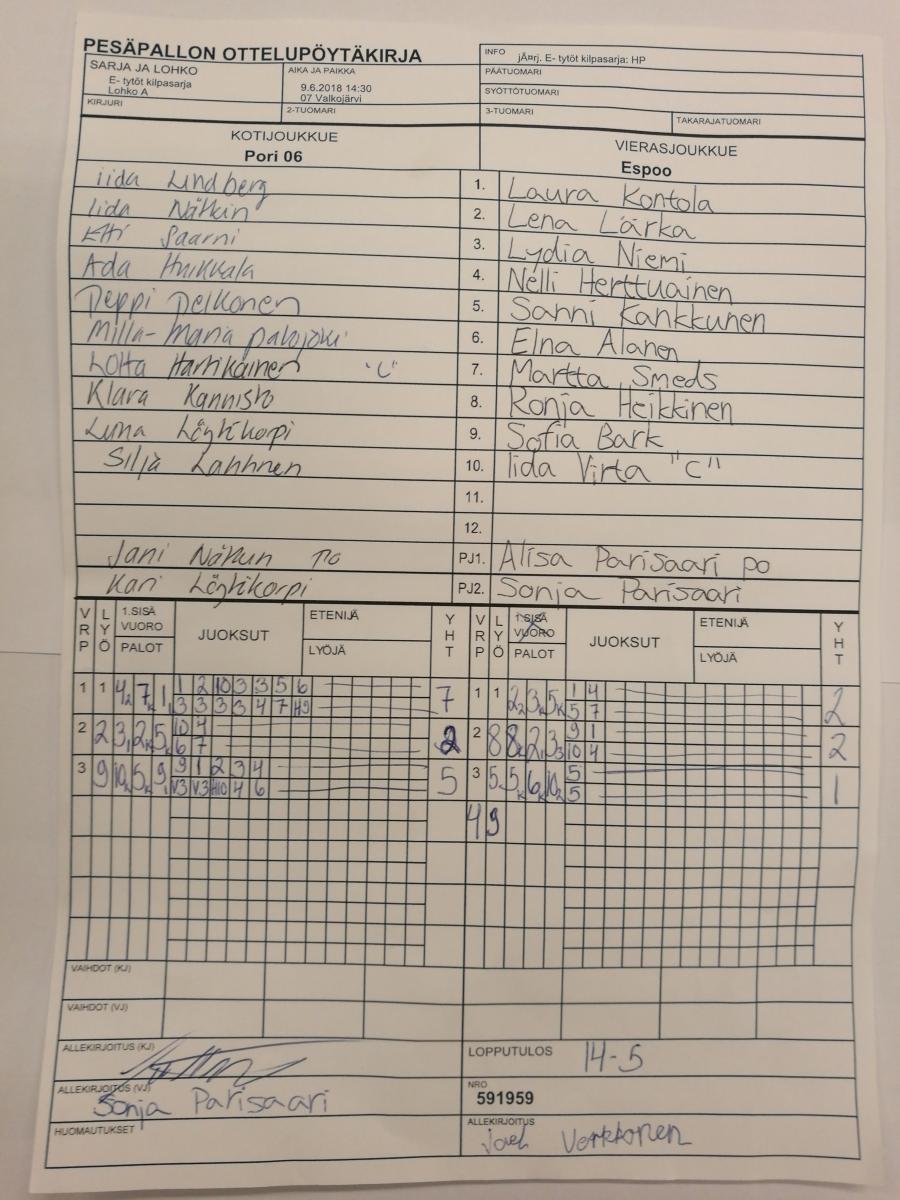 PESÄPALLON OTTELUPÖYTÄKIRJA
INFO jÄ¤rj. E- tytöt kilpasarja: HP
SARJA JA LOHKO
E- tytöt kilpasarja
Lohko A
AIKA JA PAIKKA
9.6.2018 14:30
07 Valkojärvi
PÄÄTUOMARI
SYÖTTÖTUOMARI
KIRJURI
2-TUOMARI
3-TUOMARI
TAKARAJATUOMARI
KOTIJOUKKUE
Pori 06
VIERASJOUKKUE
Espoo
iida Lindberg 1. Laura Kontola
Iida Näkin 2. Lena Lärka
Saarni 3. Lydia Niemi
Ada Huikkala 4. Nelli Herttuainen
Peppi Pelkonen 5. Sanni Kankkunen
Milla-Maria palojoki 6. Elna Alanen
Lotta Hartikainen "C" 7. Martta Smeds
Klara Kannisto 8. Ronja Heikkinen
Luna Löytökorpi 9. Sofia Bark
Silja 10. Iida Virta "C"
11.
12.
Jani Näkin PJ1. Alisa Parisaari po
Kari Löytökorpi PJ2. Sonja Parisaari
VRP LYÖ 1.SISÄ VUORO PALOT JUOKSUT ETENIJÄ LYÖJÄ YHT VRP LYÖ 1.SISÄ VUORO PALOT JUOKSUT ETENIJÄ LYÖJÄ YHT
1 1 1 2 10 3 3 5 6 7 1 1 1 4 2
3 3 3 3 4 7 H9 5 7
2 2 10 4 2 2 8 9 1 2
6 7 10 4
3 9 9 1 2 3 4 5 3 5 5 1
V3 V3 H10 4 6 5
4 9
VAIHDOT (KJ)
VAIHDOT (VJ)
ALLEKIRJOITUS (KJ)
LOPPUTULOS 14-5
ALLEKIRJOITUS (VJ) Sonja Parisaari
NRO
591959
HUOMAUTUKSET
ALLEKIRJOITUS